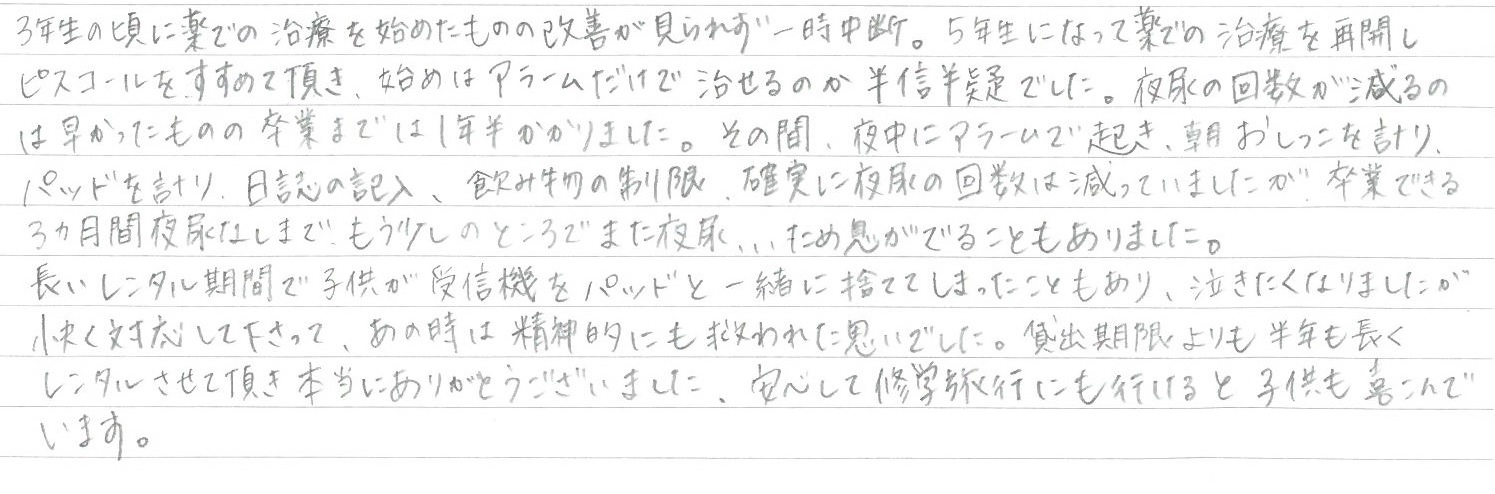 3年生の頃に薬での治療を始めたものの改善が見られず一時中断。5年生になって薬での治療を再開し
ピスコールをすすめて頂き、始めはアラームだけで治せるのか半信半疑でした。夜尿の回数が減るの
は早かったものの卒業までは1年半かかりました。その間、夜中にアラームで起き、朝おしっこを計り、
パッドを計り、日誌の記入、飲み物の制限、確実に夜尿の回数は減っていましたが、卒業できる
3カ月間夜尿なしまで、もう少しのところでまた夜尿...ため息がでることもありました。
長いレンタル期間で子供が受信機をパッドと一緒に捨ててしまったこともあり、泣きたくなりましたが
快く対応して下さって、あの時は精神的にも救われた思いでした。貸出期限よりも半年も長く
レンタルさせて頂き本当にありがとうございました、安心して修学旅行にも行けると子供も喜こんで
います。